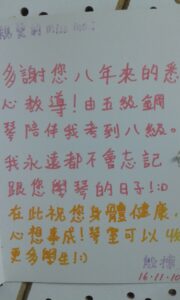 親愛的Miss Ho:
多謝您八年來的悉
心教導！由五級鋼
琴陪伴我考到八級。
我永遠都不會忘記
跟您學琴的日子！:D
在此祝您身體健康，
心想事成！琴室可以收
更多學生！:)
16.11.10